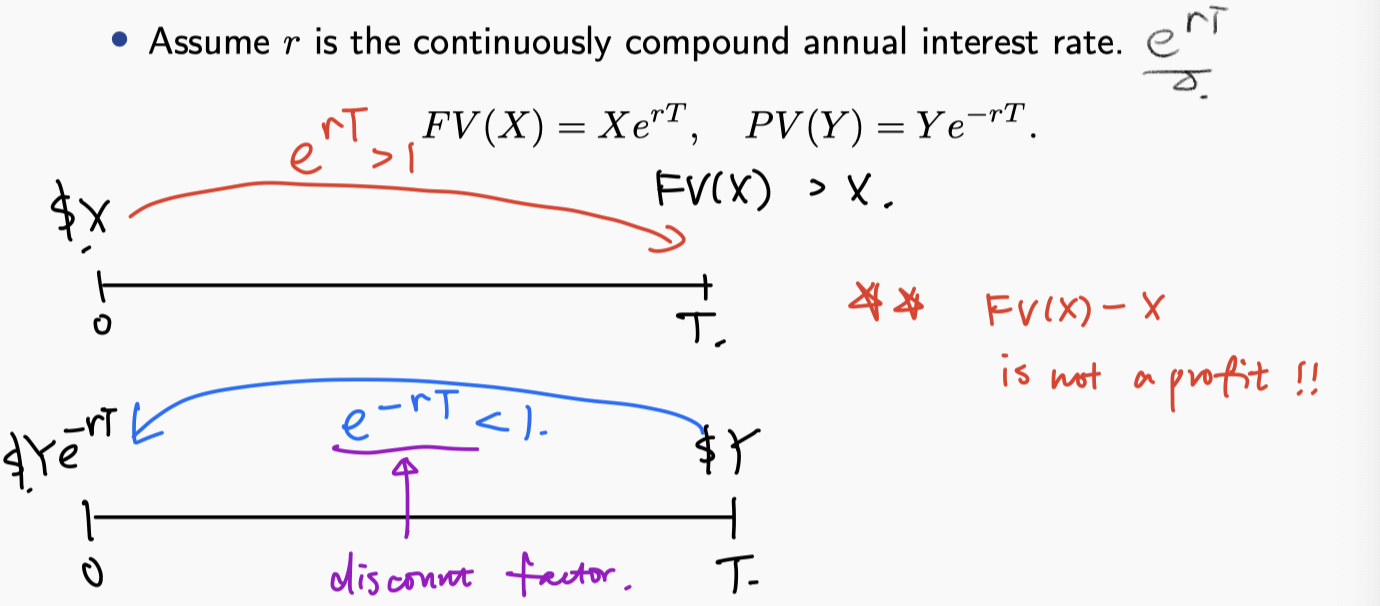 • Assume r is the continuously compound annual interest rate. e^{rT}
FV(X) = Xe^{rT}, PV(Y) = Ye^{-rT}.
e^{rT} > 1
$X
FV(X) > X.
0
T.
** FV(X) - X
is not a profit !!
$Ye^{-rT}
e^{-rT} < 1.
$Y
0
T.
discount factor.